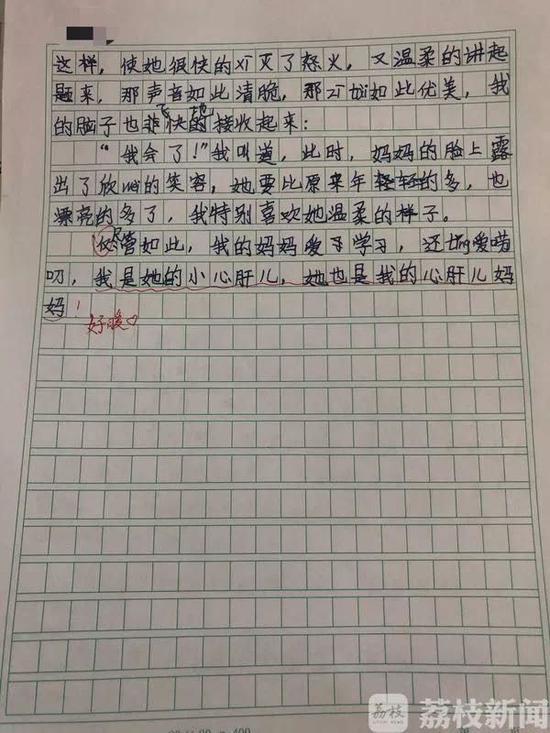 这样，使她很快的xī灭了怒火，又温柔的讲起
题来，那声音如此清脆，那zī tài如此优美，我
的脑子也飞快的接收起来：
“我会了！”我叫道，此时，妈妈的脸上露
出了欣wèi的笑容，她要比原来年轻的多，也
漂亮的多了，我特别喜欢她温柔的样子。
尽管如此，我的妈妈爱学习，还
叨，我是她的小心肝儿，她也是我的心肝儿妈
妈！
好暖♡
荔枝 荔枝新闻